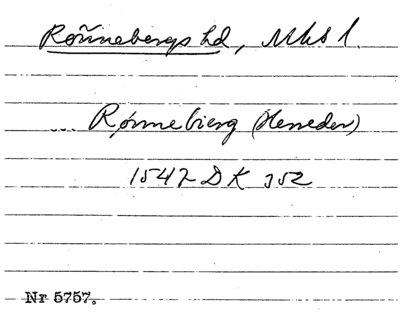 Rönnebergs hd, Mks l.
... Rønnebierg (Herreder)
1542 DK 352
Nr 5757.